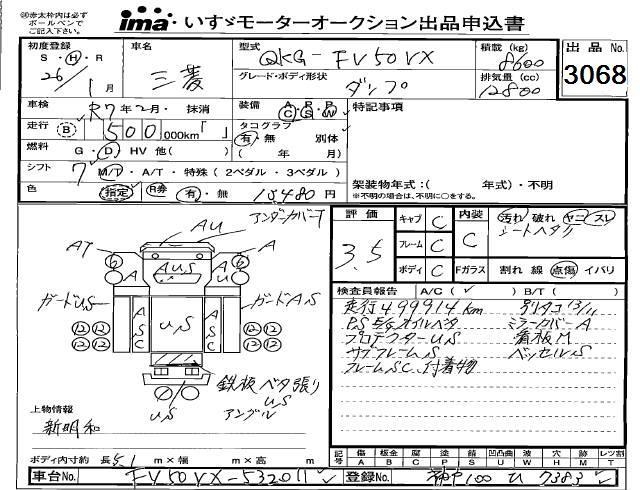 ㊟赤太枠内は必ず
ボールペンで
ご記入下さい。
ima・いすゞモーターオークション出品申込書
初度登録 S・H・R 26/1月
車名 三菱
型式 QKG-FV50VX
グレード・ボディ形状 ダンプ
積載(kg) 8600
排気量(cc) 12800
出品No. 3068
車検 R7年2月・抹消
装備 A・P・P C S W
走行 B 500,000km「」
タコグラフ 有・無 別体 (年月)
燃料 G・D・HV 他( )
シフト 7 M/T・A/T・特殊(2ペダル・3ペダル)
色 指定 R券 有・無 15480円
特記事項
架装物年式:( 年式)・不明
※不明の場合は、不明に○をする。
アンダーカバーT
AU
AT
A
AUS
AU
ガードUS
ガードAS
ASC
US
ASC
12 12
12 12
12 12
12 12
鉄板ベタ張り
US
US アングル
上物情報
新明和
ボディ内寸約 長5.1m×幅 m×高 m
評価 3.5
キャブ C
フレーム C
ボディ C
内装 C
Fガラス
汚れ 破れ ヤニ スレ
シートヘタリ
割れ 線 点傷 イバリ
検査員報告 A/C(✓) B/T( )
走行499914km 別タコ13/11
PS E/Gオイルベタ ミラーカバーA
プロテクターUS 看板M
サブフレームS ベッセルS
フレームSC、付着物
記号 傷A 板金B 腐C 塗P 錆S 凹凸曲U 波W 穴H 跡M レツ割T
車台No. FV50VX-532011
登録No. 神戸100 ひ 7383